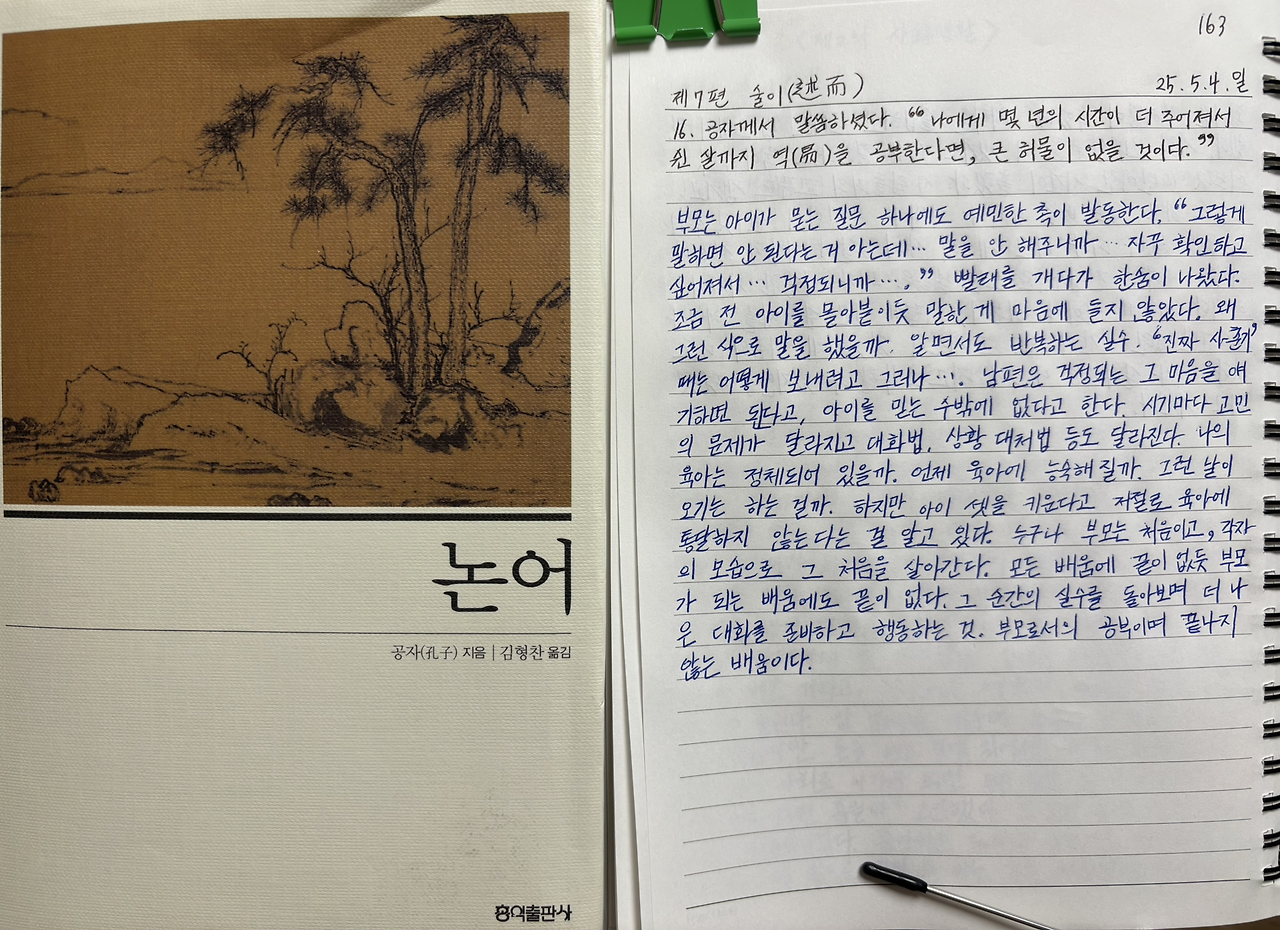 논어
공자(孔子) 지음 | 김형찬 옮김
홍익출판사
163
제7편 술이(述而) 25.5.4.일
16. 공자께서 말씀하셨다. "나에게 몇 년의 시간이 더 주어져서
쉰 살까지 역(易)을 공부한다면, 큰 허물이 없을 것이다."
부모는 아이가 묻는 질문 하나에도 예민한 촉이 발동한다. "그렇게
말하면 안 된다는 거 아는데… 말을 안 해주니까… 자꾸 확인하고
싶어져서… 걱정되니까…." 빨래를 개다가 한숨이 나왔다.
조금 전 아이를 몰아붙이듯 말한 게 마음에 들지 않았다. 왜
그런 식으로 말을 했을까. 알면서도 반복하는 실수. "진짜 사춘기"
때는 어떻게 보내려고 그러나…. 남편은 걱정되는 그 마음을 얘
기하면 된다고, 아이를 믿는 수밖에 없다고 한다. 시기마다 고민
의 문제가 달라지고 대화법, 상황 대처법 등도 달라진다. 나의
육아는 정체되어 있을까. 언제 육아에 능숙해질까. 그런 날이
오기는 하는 걸까. 하지만 아이 셋을 키운다고 저절로 육아에
통달하지 않는다는 걸 알고 있다. 누구나 부모는 처음이고, 각자
의 모습으로 그 처음을 살아간다. 모든 배움에 끝이 없듯 부모
가 되는 배움에도 끝이 없다. 그 순간의 실수를 돌아보며 더 나
은 대화를 준비하고 행동하는 것. 부모로서의 공부이며 끝나지
않는 배움이다.